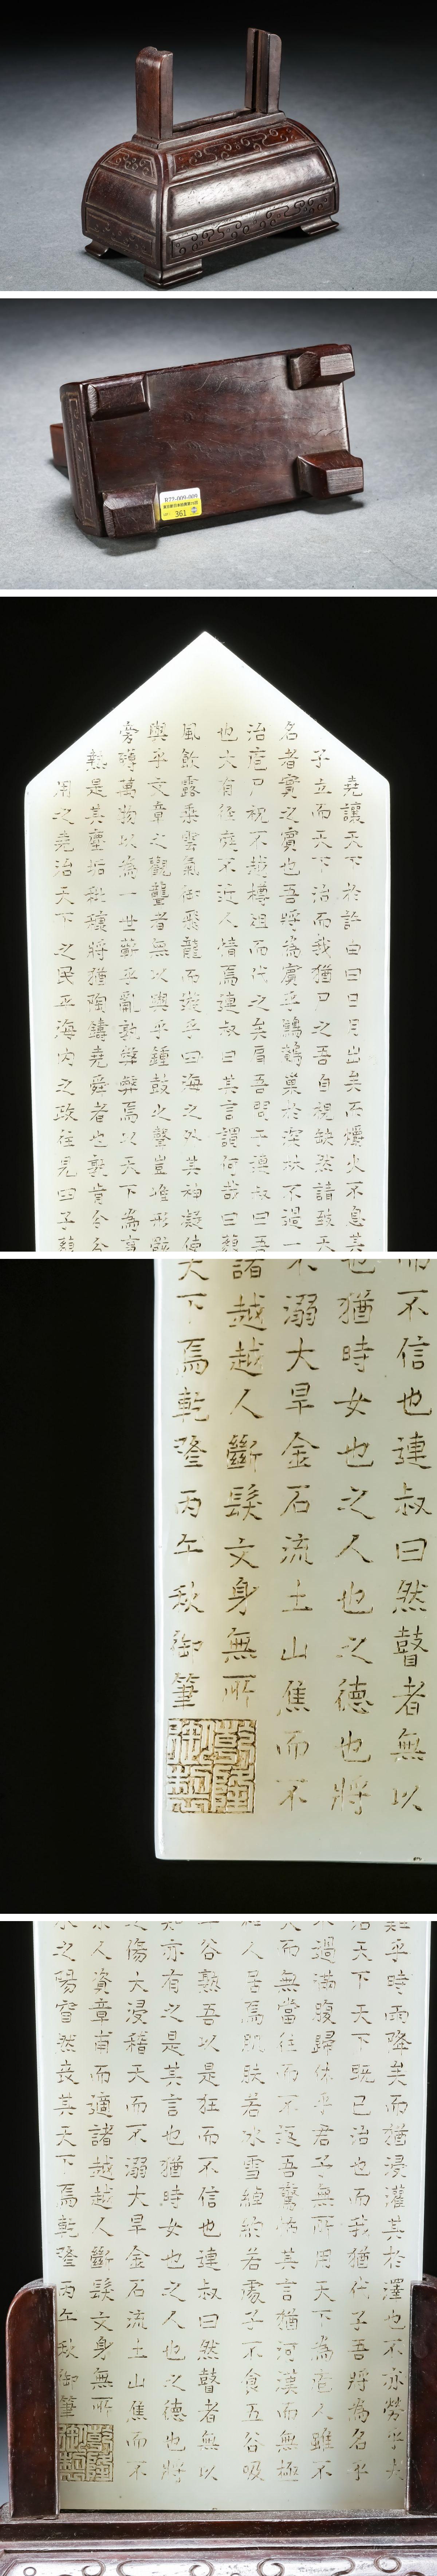 R77-009-009
361
堯讓天下於許由曰日月出矣而爝火不息其
子立而天下治而我猶尸之吾自視缺然請致天
名者實之賓也吾將為賓乎鷦鷯巢於深林不過一
治庖尸祝不越樽俎而代之矣肩吾問于連叔曰吾
也大有徑庭不近人情焉連叔曰其言謂何哉曰藐
風飲露乘雲氣御飛龍而遊乎四海之外其神凝使
與乎文章之觀聾者無以與乎鍾鼓之聲豈唯形骸
旁礡萬物以為一世蘄乎亂孰弊弊焉以天下為事
熱是其塵垢秕穅將猶陶鑄堯舜者也孰肯分分
用之堯治天下之民平海內之政往見四子藐
而不信也連叔曰然瞽者無以
也猶時女也之人也之德也將
不溺大旱金石流土山焦而不
諸越越人斷髮文身無所
天下焉乾隆丙午秋御筆
乾隆御製
難乎時雨降矣而猶浸灌其於澤也不亦勞乎夫
治天下天下既已治也而我猶代子吾將為名乎
不過滿腹歸休乎君予無所用天下為庖人雖不
大而無當往而不返吾驚怖其言猶河漢而無極
人居焉肌膚若冰雪綽約若處子不食五谷吸
谷熟吾以是狂而不信也連叔曰然瞽者無以
知亦有之是其言也猶時女也之人也之德也將
之傷大浸稽天而不溺大旱金石流土山焦而不
宋人資章甫而適諸越越人斷髮文身無所
水之陽窅然喪其天下焉乾隆丙午秋御筆
乾隆御製